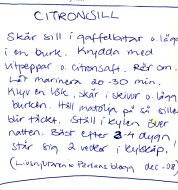 CITRONSILL
Skär sill i gaffelbitar o. lägg
i en burk. Krydda med
vitpeppar o. citronsaft. Rör om.
Låt marinera 20-30 min.
Klyv en lök, skär i skivor o. lägg i
burken. Häll matolja på så sillen
blir täckt. Ställ i kylen över
natten. Bäst efter 3-4 dygn,
står sig 2 veckor i kylskåp.
(Livsnjutaren o Pärlans blogg dec -08)